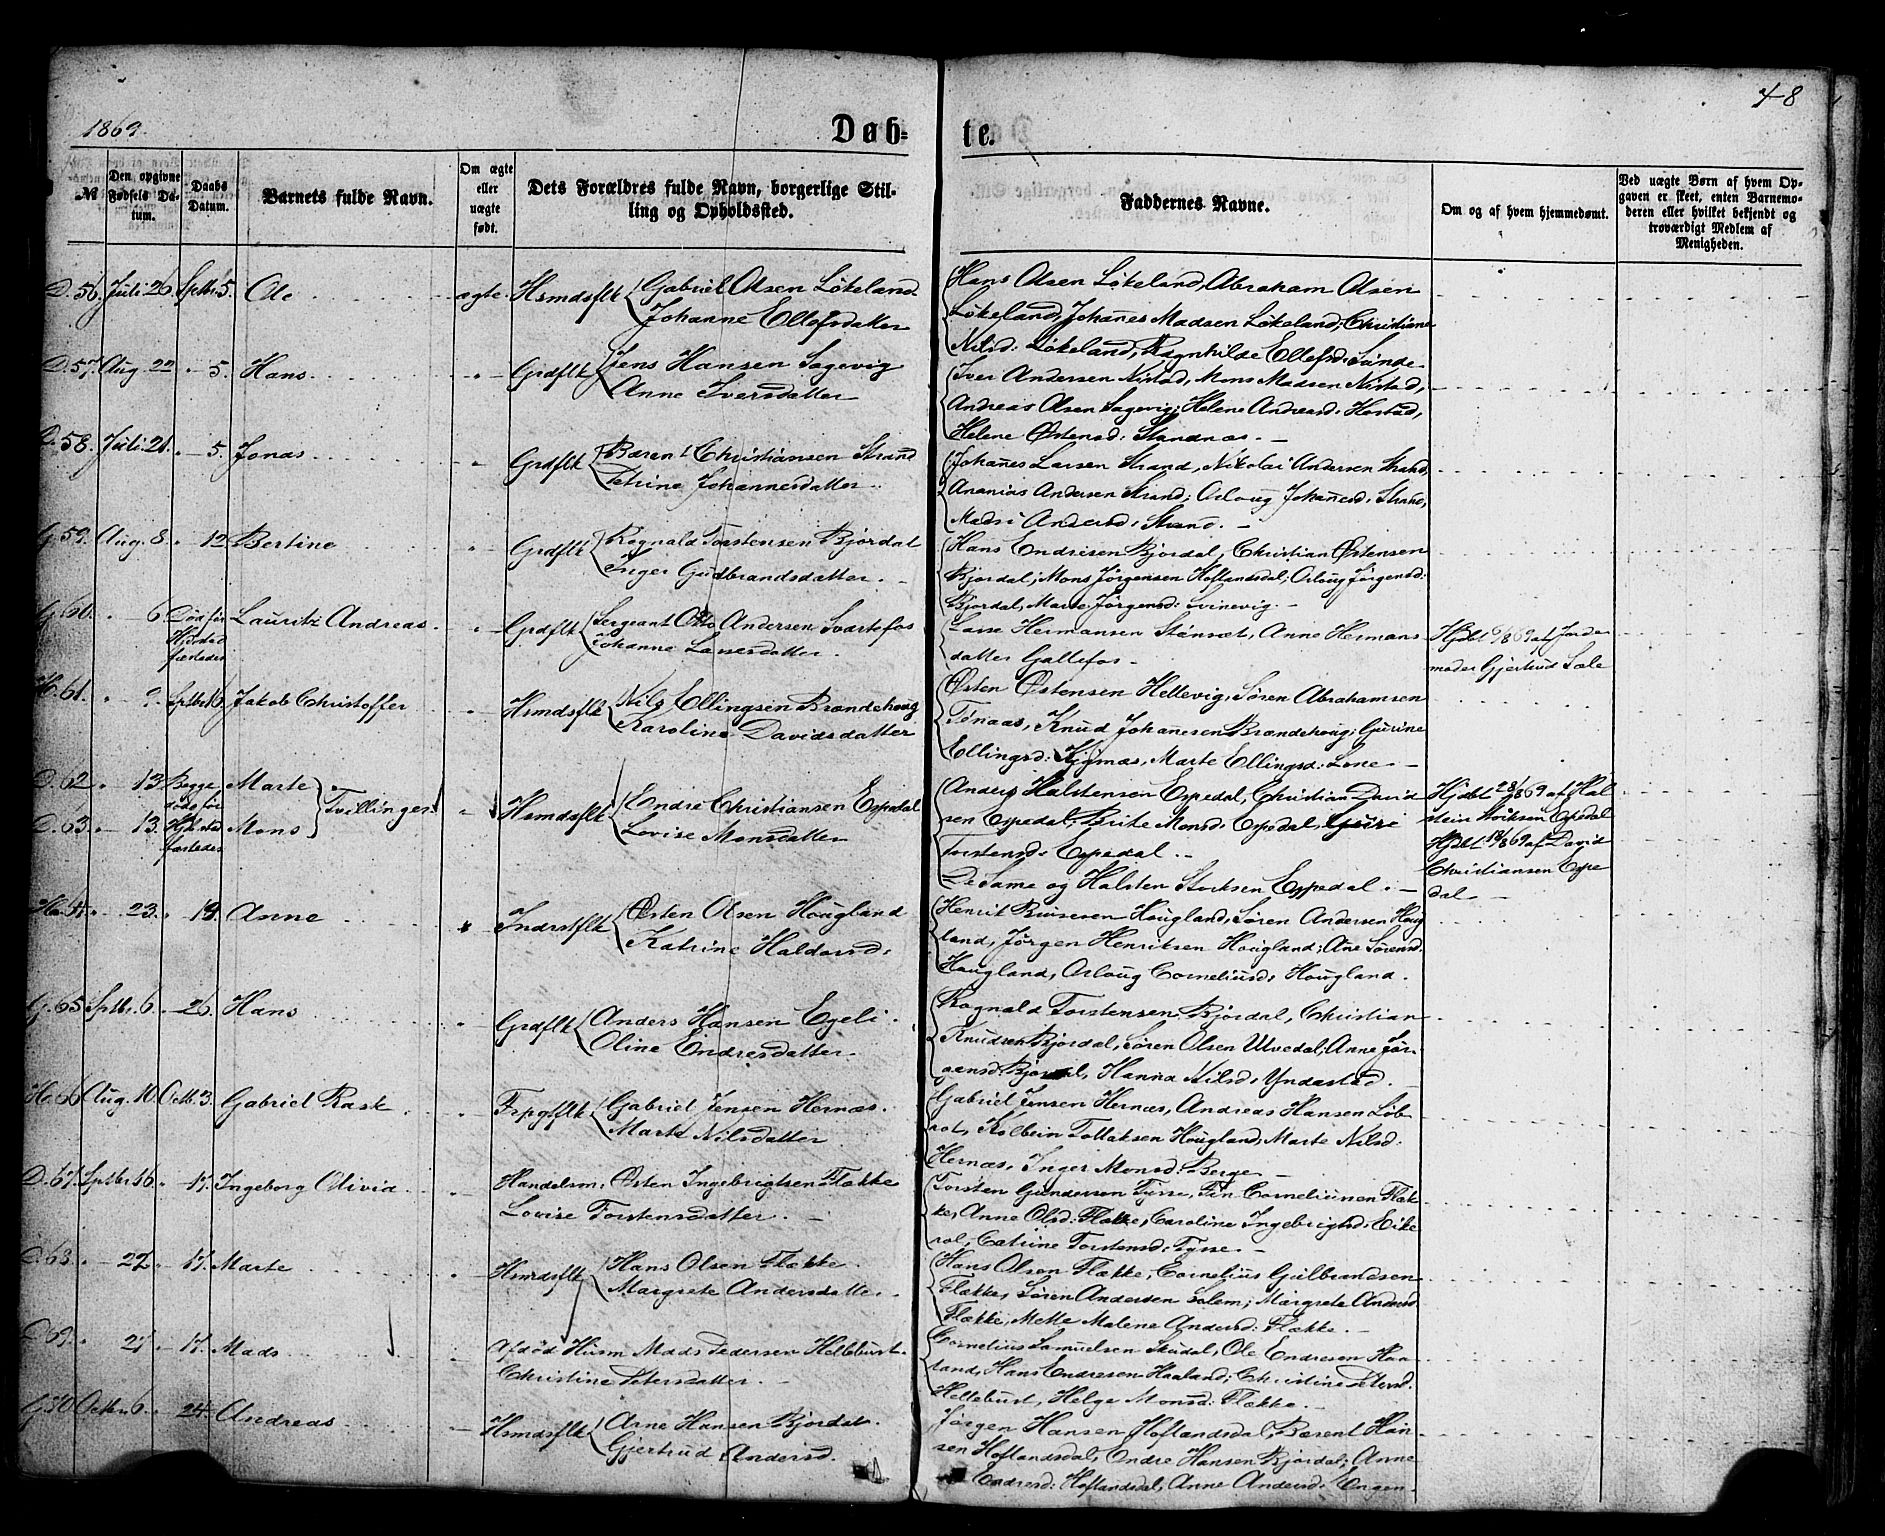 1869.
48
Døb=
te.
№
Den opgivne Fødsels Da-tum.
Daabs Datum.
Barnets fulde Navn.
Om ægte eller uægte født.
Dets Forældres fulde Navn, borgerlige Stil-
ling og Opholdssted.
Faddernes Navne.
Om og af hvem hjemmedøbt.
Ved uægte Børn af hvem Op-
gaven er skeet, enten Barnemo-
deren eller hvilket bekjendt og
troværdigt Medlem af
Menigheden.
D. 56. Juli 26. Sptbr. 5. Ole ægte Hsmdsflk Gabriel Olsen Løkeland
Johanne Ellefsdatter
Hans Olsen Løkeland, Abraham Olsen
Løkeland, Johanes Madsen Løkeland, Christiane
Nilsd: Løkeland, Ragnhilde Ellefsd: Sande
D. 57. Aug. 22 " 5. Hans " Grdflk Jens Hansen Sagevig
Anne Iversdatter
Iver Andersen Nistad, Mons Madsen Nistad,
Andreas Olsen Sagevig; Helene Andersd: Hestad,
Helene Østensd: Standnæs. -
D. 58. Juli 21. " 5. Jonas " Grdflk Bærent Christiansen Strand
Petrine Johannesdatter.
Johanes Larsen Strand, Nikolai Andersen Strand,
Ananias Andersen Strand; Orloug Johanesd: Strand,
Madsi Andersd: Strand. -
G. 59. Aug. 8. " 12 Bertine " Grdflk Rognald Torstensen Bjordal
Inger Gudbrandsdatter. -
Hans Endresen Bjordal, Christian Østensen
Bjordal; Mons Jørgensen Hoflandsdal; Orloug Jørgensd:
Bjordal, Marte Jørgensd: Svinevig. -
G. 60. " 6 Død før Hjdaab fæstedes Lauritz Andreas " Grdflk Sergeant Otto Andersen Svartefos
Johanne Larsdatter.
Lasse Hermansen Stensæt, Anne Hermans
datter Gallefos -
Hjdbt 6/8 69 af Jorde
moder Gjertrud Sole
H. 61. " 9. Sptbr. Jakob Christoffer " Hsmdsflk Nils Ellingsen Brændehoug
Karoline Davidsdatter
Østen Østensen Hellevig, Søren Abrahamsen
Tønaas, Knud Johanesen Brændehoug; Gurine
Ellingsd: Kjimæs, Marte Ellingsd: Lone -
D. 62 " 13 Begge døde før fæstedes Marte
D. 63. " 13. Mons Tvillinger " Hsmdsflk Endre Christiansen Espedal
Lovise Monsdatter
Anders Halstensen Espedal, Christian David
sen Espedal; Brite Monsd: Espedal,
Torstensd: Espedal. -
De Same og Halsten Espedal. -
Hjdbt af Hal
stein Espedal
Hjdbt af David
Christiansen Espe
dal -
" 23. " 19. Anne " Indrstflk Østen Olsen Hougland
Katrine Haldorsd:
Henrik Hougland, Søren Andersen Houg
land, Jørgen Henriksen Hougland; Ane Sørensd:
Hougland, Orloug Corneliusd: Hougland.
G. 65 Sptbr. 6. " 26. Hans " Grdflk Anders Hansen Egeli
Oline Endresdatter.
Rognald Torstensen Bjordal, Christian
Knudsen Bjordal, Søren Olsen Ulvedal; Anne Jør-
gensd: Bjordal, Hanna Nilsd: Yndestad. -
H. 66 Aug. 10. Octb. 3. Gabriel Rask " Gabriel Jensen Hernæs.
Marte Nilsdatter
Gabriel Jensen Hernæs, Andreas Hansen Løb-
rot, Kolbein Tollaksen Hougland, Marte Nilsd:
Hernæs, Inger Monsd: Berge -
D. 67. Sptbr. 16. " 17. Ingeborg Olivia " Handelsm: Østen Ingebrigtsen Flække
Lovise Torstensdatter. -
Torsten Gundersen Tysse, Fin Corneliussen Flæk-
ke, Anne Olsd: Flække, Caroline Ingebrigtsd: Eike
rol, Catrine Torstensd: Tysse. -
D. 63. " 27. " 17. Marte " Hsmdsflk Hans Olsen Flække.
Margrete Andersdatter.
Hans Olsen Flække, Cornelius Gulbrandsen
Flække, Søren Andersen Solem; Margrete Andersd:
Flække, Mette Malene Andersd: Flække. -
D. 69. " 27 " 17. Mads " Afdød Husm Mads Pedersen Hellebust.
Christine Petersdatter. -
Cornelius Samuelsen Skudal, Ole Endresen Haa-
land, Hans Endresen Haaland; Christine Petersd:
Hellebust, Helge Monsd: Flække. -
G. 70 Octbr. 6. " 24. Andreas " Hsmdsflk Arne Hansen Bjordal.
Gjertrud Andersd.
Jørgen Hansen Hoflandsdal, Bærent Han-
sen Hoflandsdal, Endre Hansen Bjordal; Anne
Endresd: Hoflandsdal, Anne Andersd: Engen.